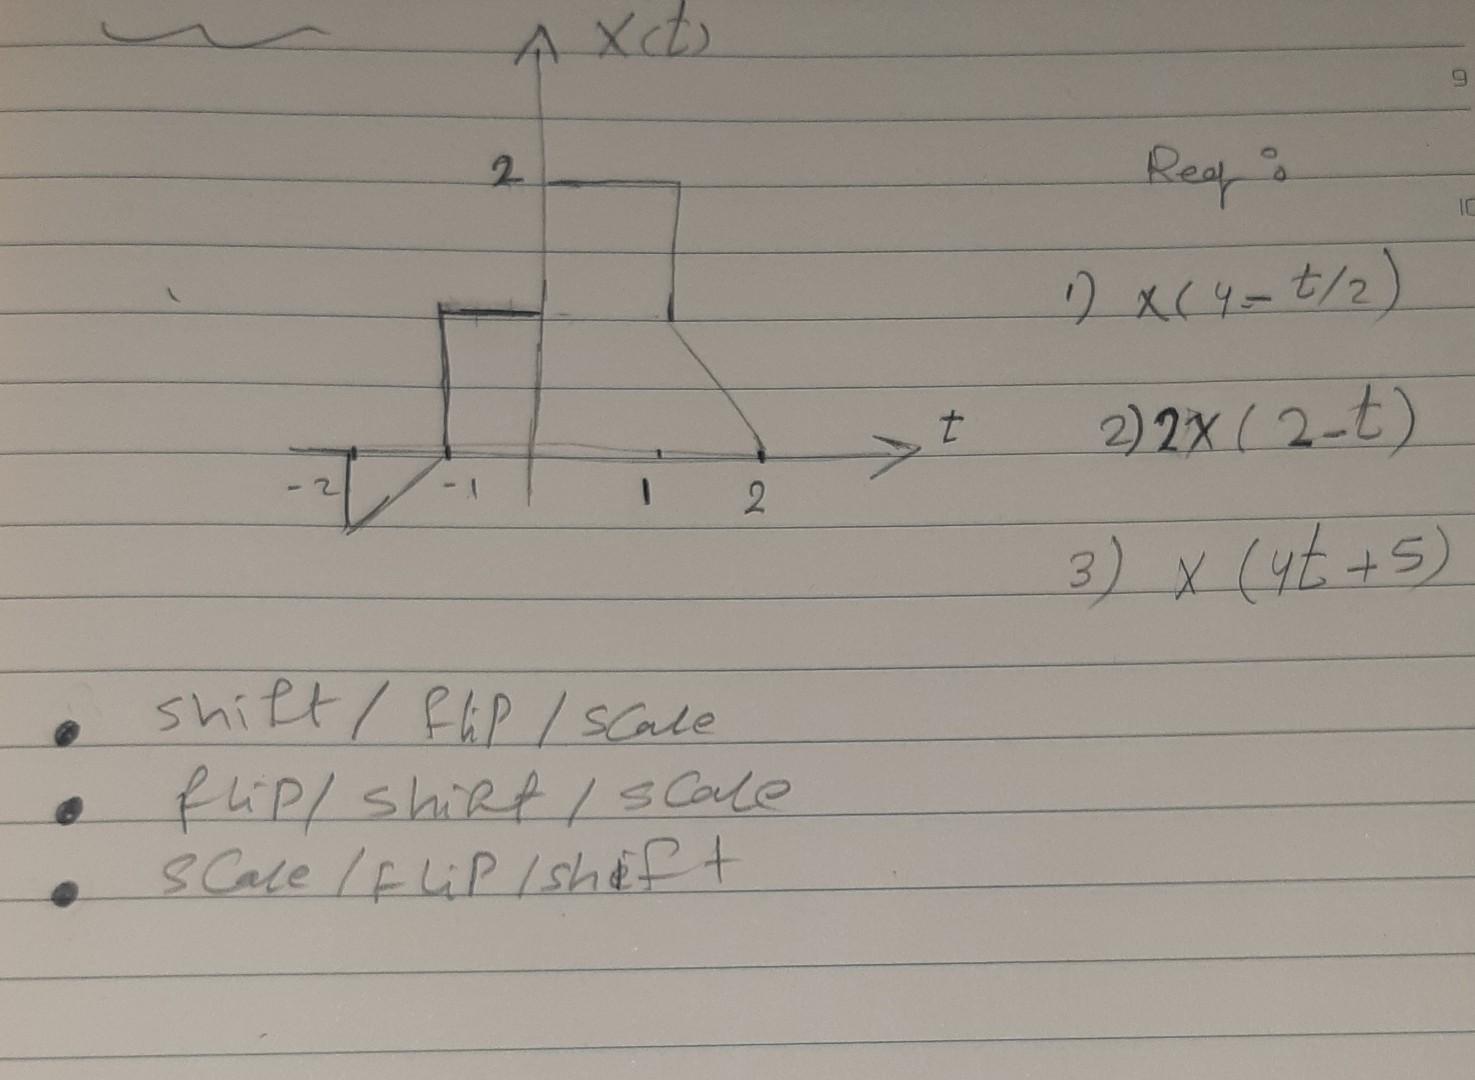 x(t)
9
2
Req:
10
1) x(4-t/2)
t
2) 2x(2-t)
-2 -1 1 2
3) x(4t+5)
• shift / flip / scale
• flip / shift / scale
• scale / flip / shift